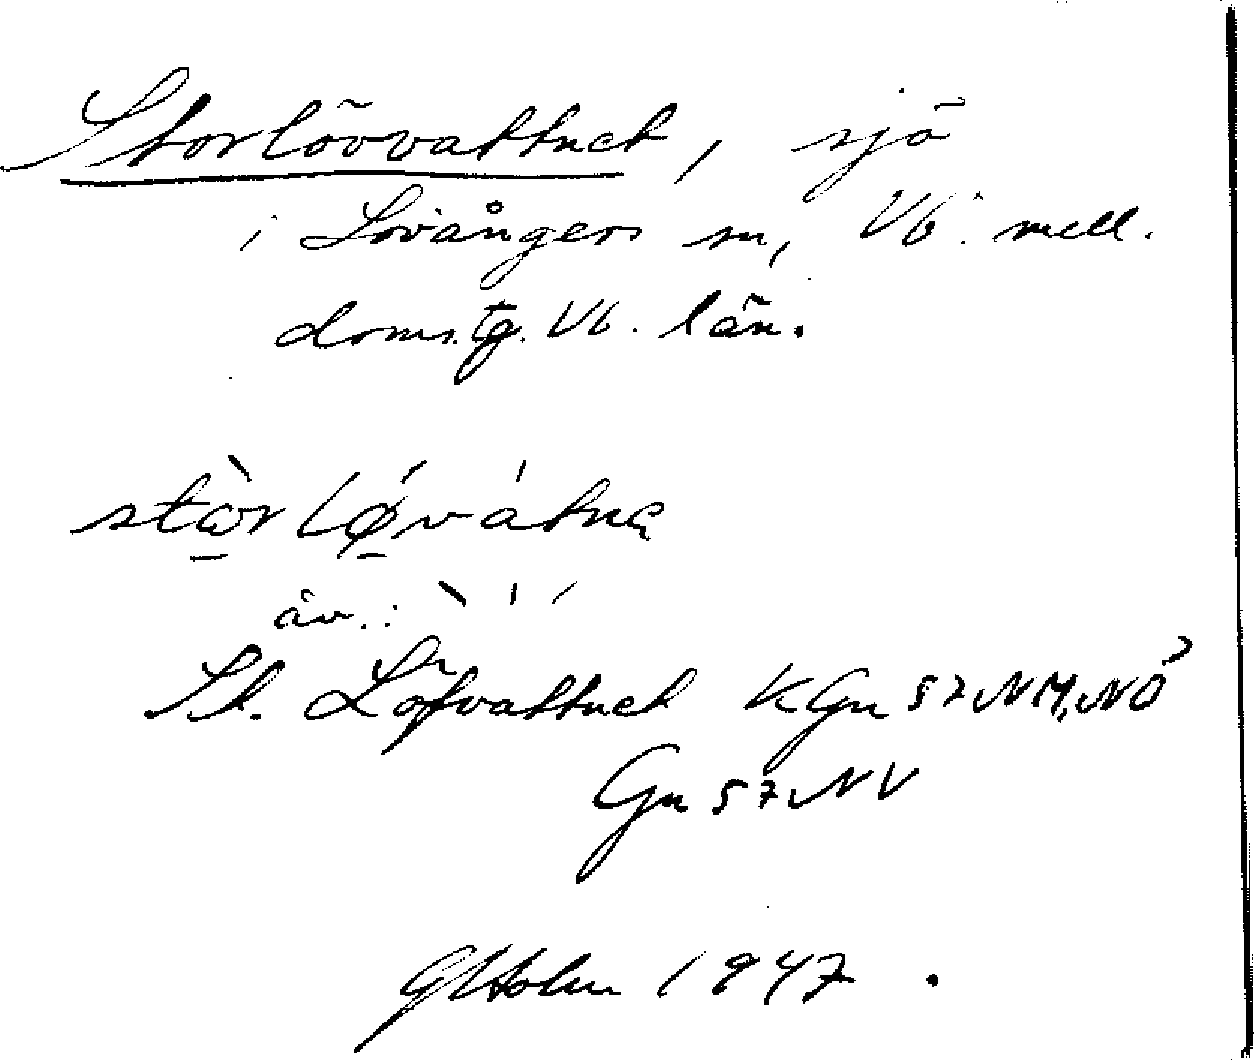 Storlövvattnet, sjö
i Lövångers sn, Vb. mell.
doms.tg. Vb. län.
stòrlǿvátnę
äv.: ` ' ´
St. Löfvattnet KGn 57 NM, NÖ
Gn 57 NV
GHolm 1947.